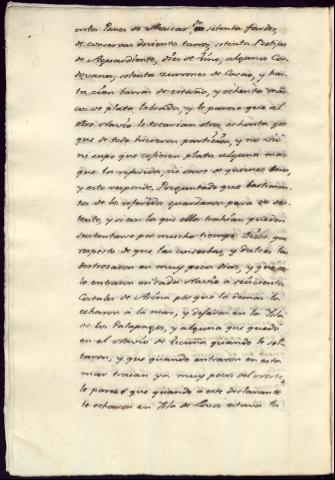 entos Panes de Azucar, con setenta fardos,
de conservas ducientos tarros, setenta Botijas
de Aguardiente, diez de Vino, algunos Cor
dovanes, setenta zurrones de Cacao, y has
ta cien barras de estaño, y ochenta mar
cos de plata labrada, y le parece que al
otro Navio le tocarian otros ochenta por
que de todo hicieron particion, y no vió
ni supo que cojiesen plata alguna mas
que la referida, ni save de quienes era,
y esto responde. Preguntado que bastimen
tos de los referidos guardaron para su sus
tento, y si con los que ellos trahian pueden
sustentarse por mucho tiempo. Dixo: que
respecto de que las conserbas, y dulces los
destrozaron en muy pocos dias, y que solo
lo entraron en cada Navio a seiscientos
Costales de Arina porque la demas la
echaron a la mar, y dejaron en la Isla
de los Galapagos, y alguna que quedó
en el Navio de quando le sol
taron, y que quando entraron en esta
mar traian ya muy pocos del Norte,
le parece que quando a este declarante
le echaron en Isla de Lovos estaria los